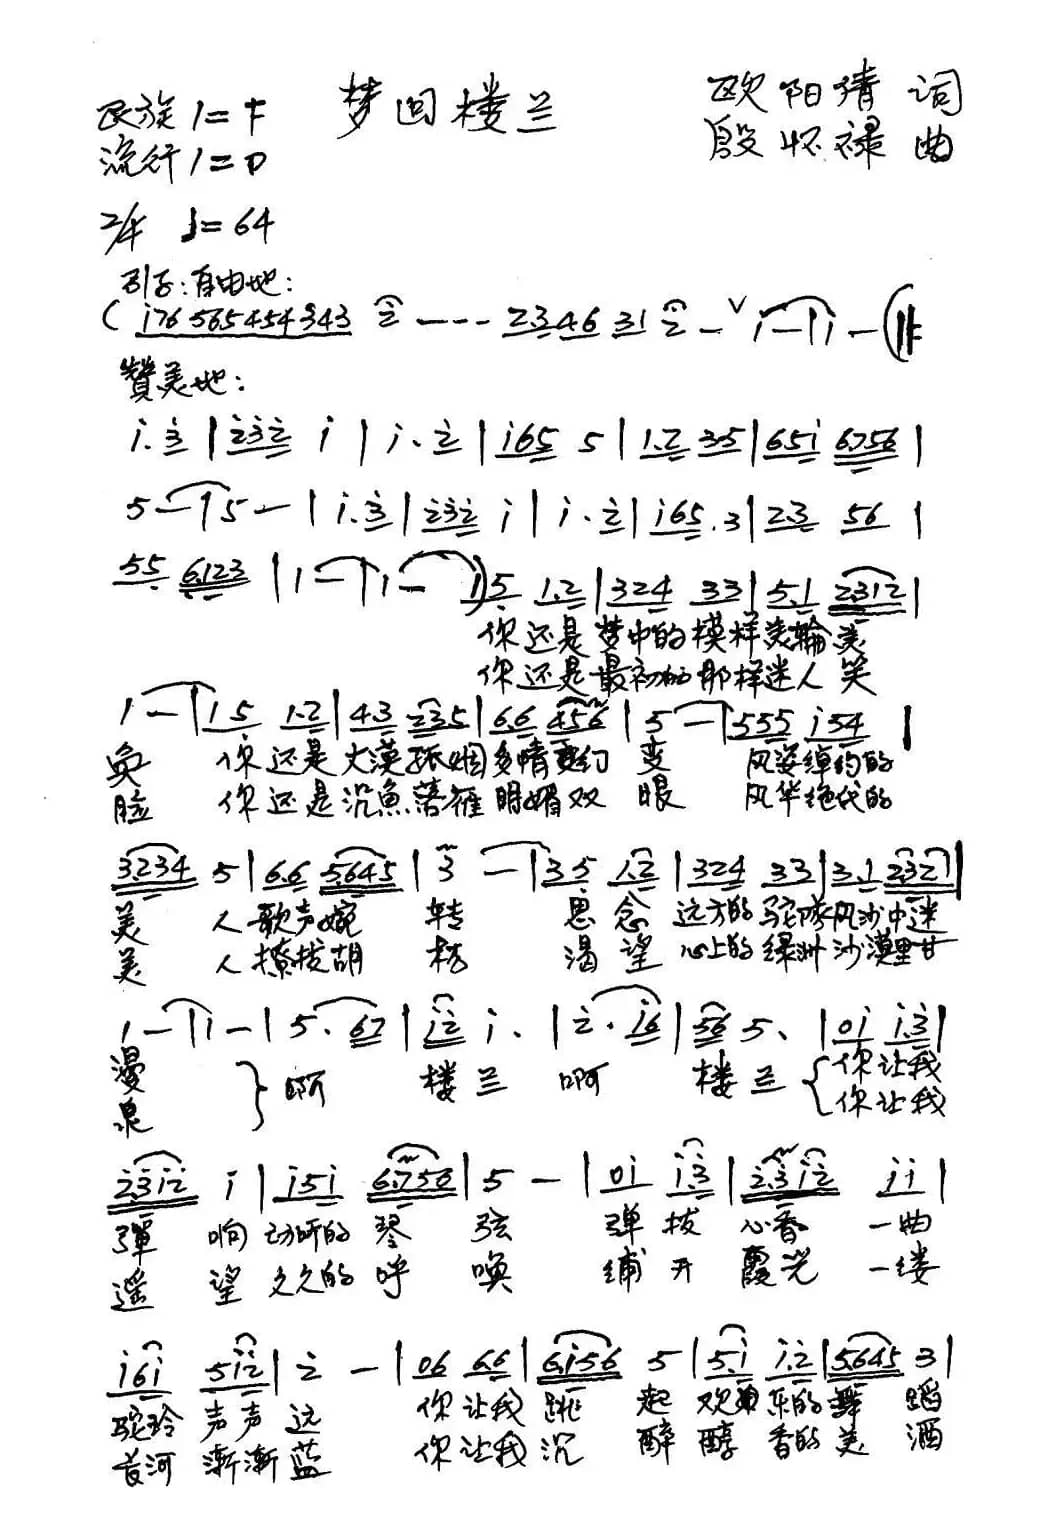 民族 1=F 梦回楼兰 欧阳猜 词
流行 1=D 殷怀禄 曲
2/4 ♩=64
引子:自由地:
( i76 565 454 343 2 --- 2346 31 2 - ∨ i - | i - )
赞美地:
i. 3 | 232 i | i. 2 | i65 5 | 1.2 35 | 65i 6.756 |
5 - | 5 - | i. 3 | 232 i | i. 2 | i65. 3 | 2.3 56 |
55 6.123 | 1 - | 1 - | 1) 5 1.2 | 324 33 | 5.1 2312 |
你还是梦中的模样美輪美
你还是最初的那样迷人笑
1 - | 1 5 1.2 | 4.3 235 | 6.6 456 | 5 - | 555 i54 |
奂 你还是大漠孤烟多情 变 风姿绰约的
脸 你还是沉魚落雁明媚双 眼 风华绝代的
3.234 5 | 6.6 5.645 | 3 - | 3 5 1.2 | 324 33 | 3.1 2321 |
美 人歌声婉 转 思念 远方的驼队风沙中迷
美 人撩拨胡 杨 渴望 心上的绿洲沙漠里甘
1 - | 1 - | 5. 67 | i2 i. | 2. i6 | 56 5. | 0i i.3 |
漫 啊 楼兰 啊 楼兰 你让我
泉 你让我
2.3i2 i | i5i 6.756 | 5 - | 0i i.3 | 2.3i2 ii |
弹 响动听的琴 弦 弹拨 心香 一曲
遥 望久久的呼 唤 铺开 霞光 一缕
i6i 5i2 | 2 - | 06 6.6 | 6.i56 5 | 5.i i.2 | 5.645 3 |
驼玲 声声 远 你让我 跳 起 欢 乐的 舞 蹈
黄河 渐渐 蓝 你让我 沉 醉 醇 香的 美 酒